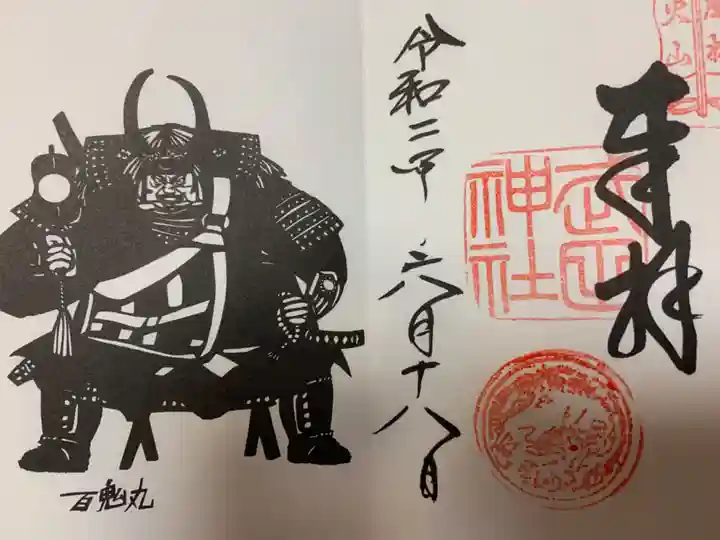 奉拝
武田
神社
令和二年 六月十八日
百鬼丸